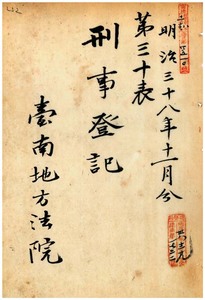 明治三十八年十一月分
第三十表
刑事登記
臺南地方法院